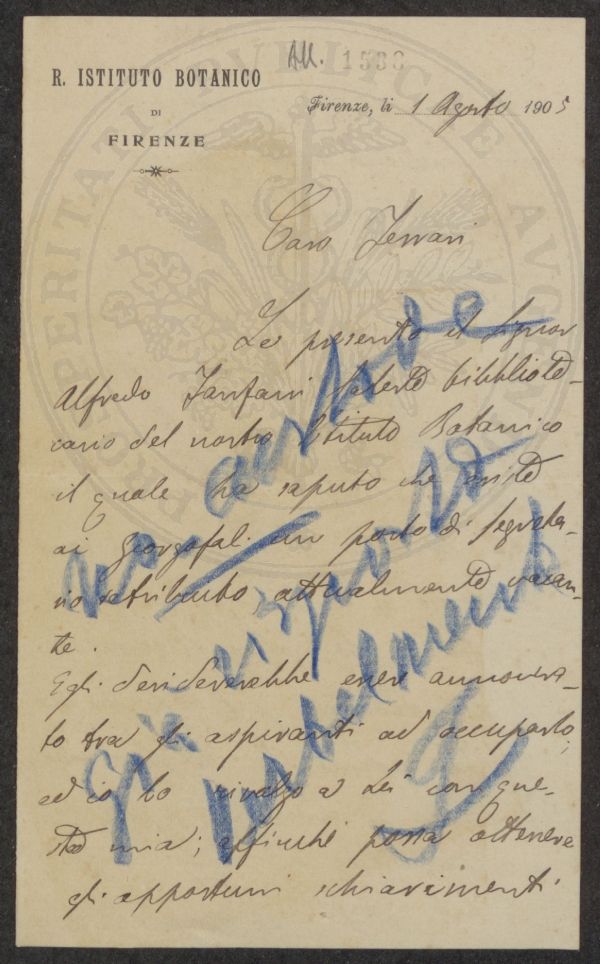 All. 1530
R. ISTITUTO BOTANICO
DI
FIRENZE
Firenze, li 1 Agosto 1905
Caro Ferrari
Le presento il Signor
Alfredo Fanfani solerte bibliote-
cario del nostro Istituto Botanico
il quale ha saputo che esiste
ai Georgofili un posto di segreta-
rio retribuito, attualmente vacan-
te.
Egli desidererebbe essere annovera-
to tra gli aspiranti ad occuparlo,
ed io lo rivolgo a Lei con que-
sta mia; affinchè possa ottenere
gli opportuni schiarimenti
già risposto
verbalmente